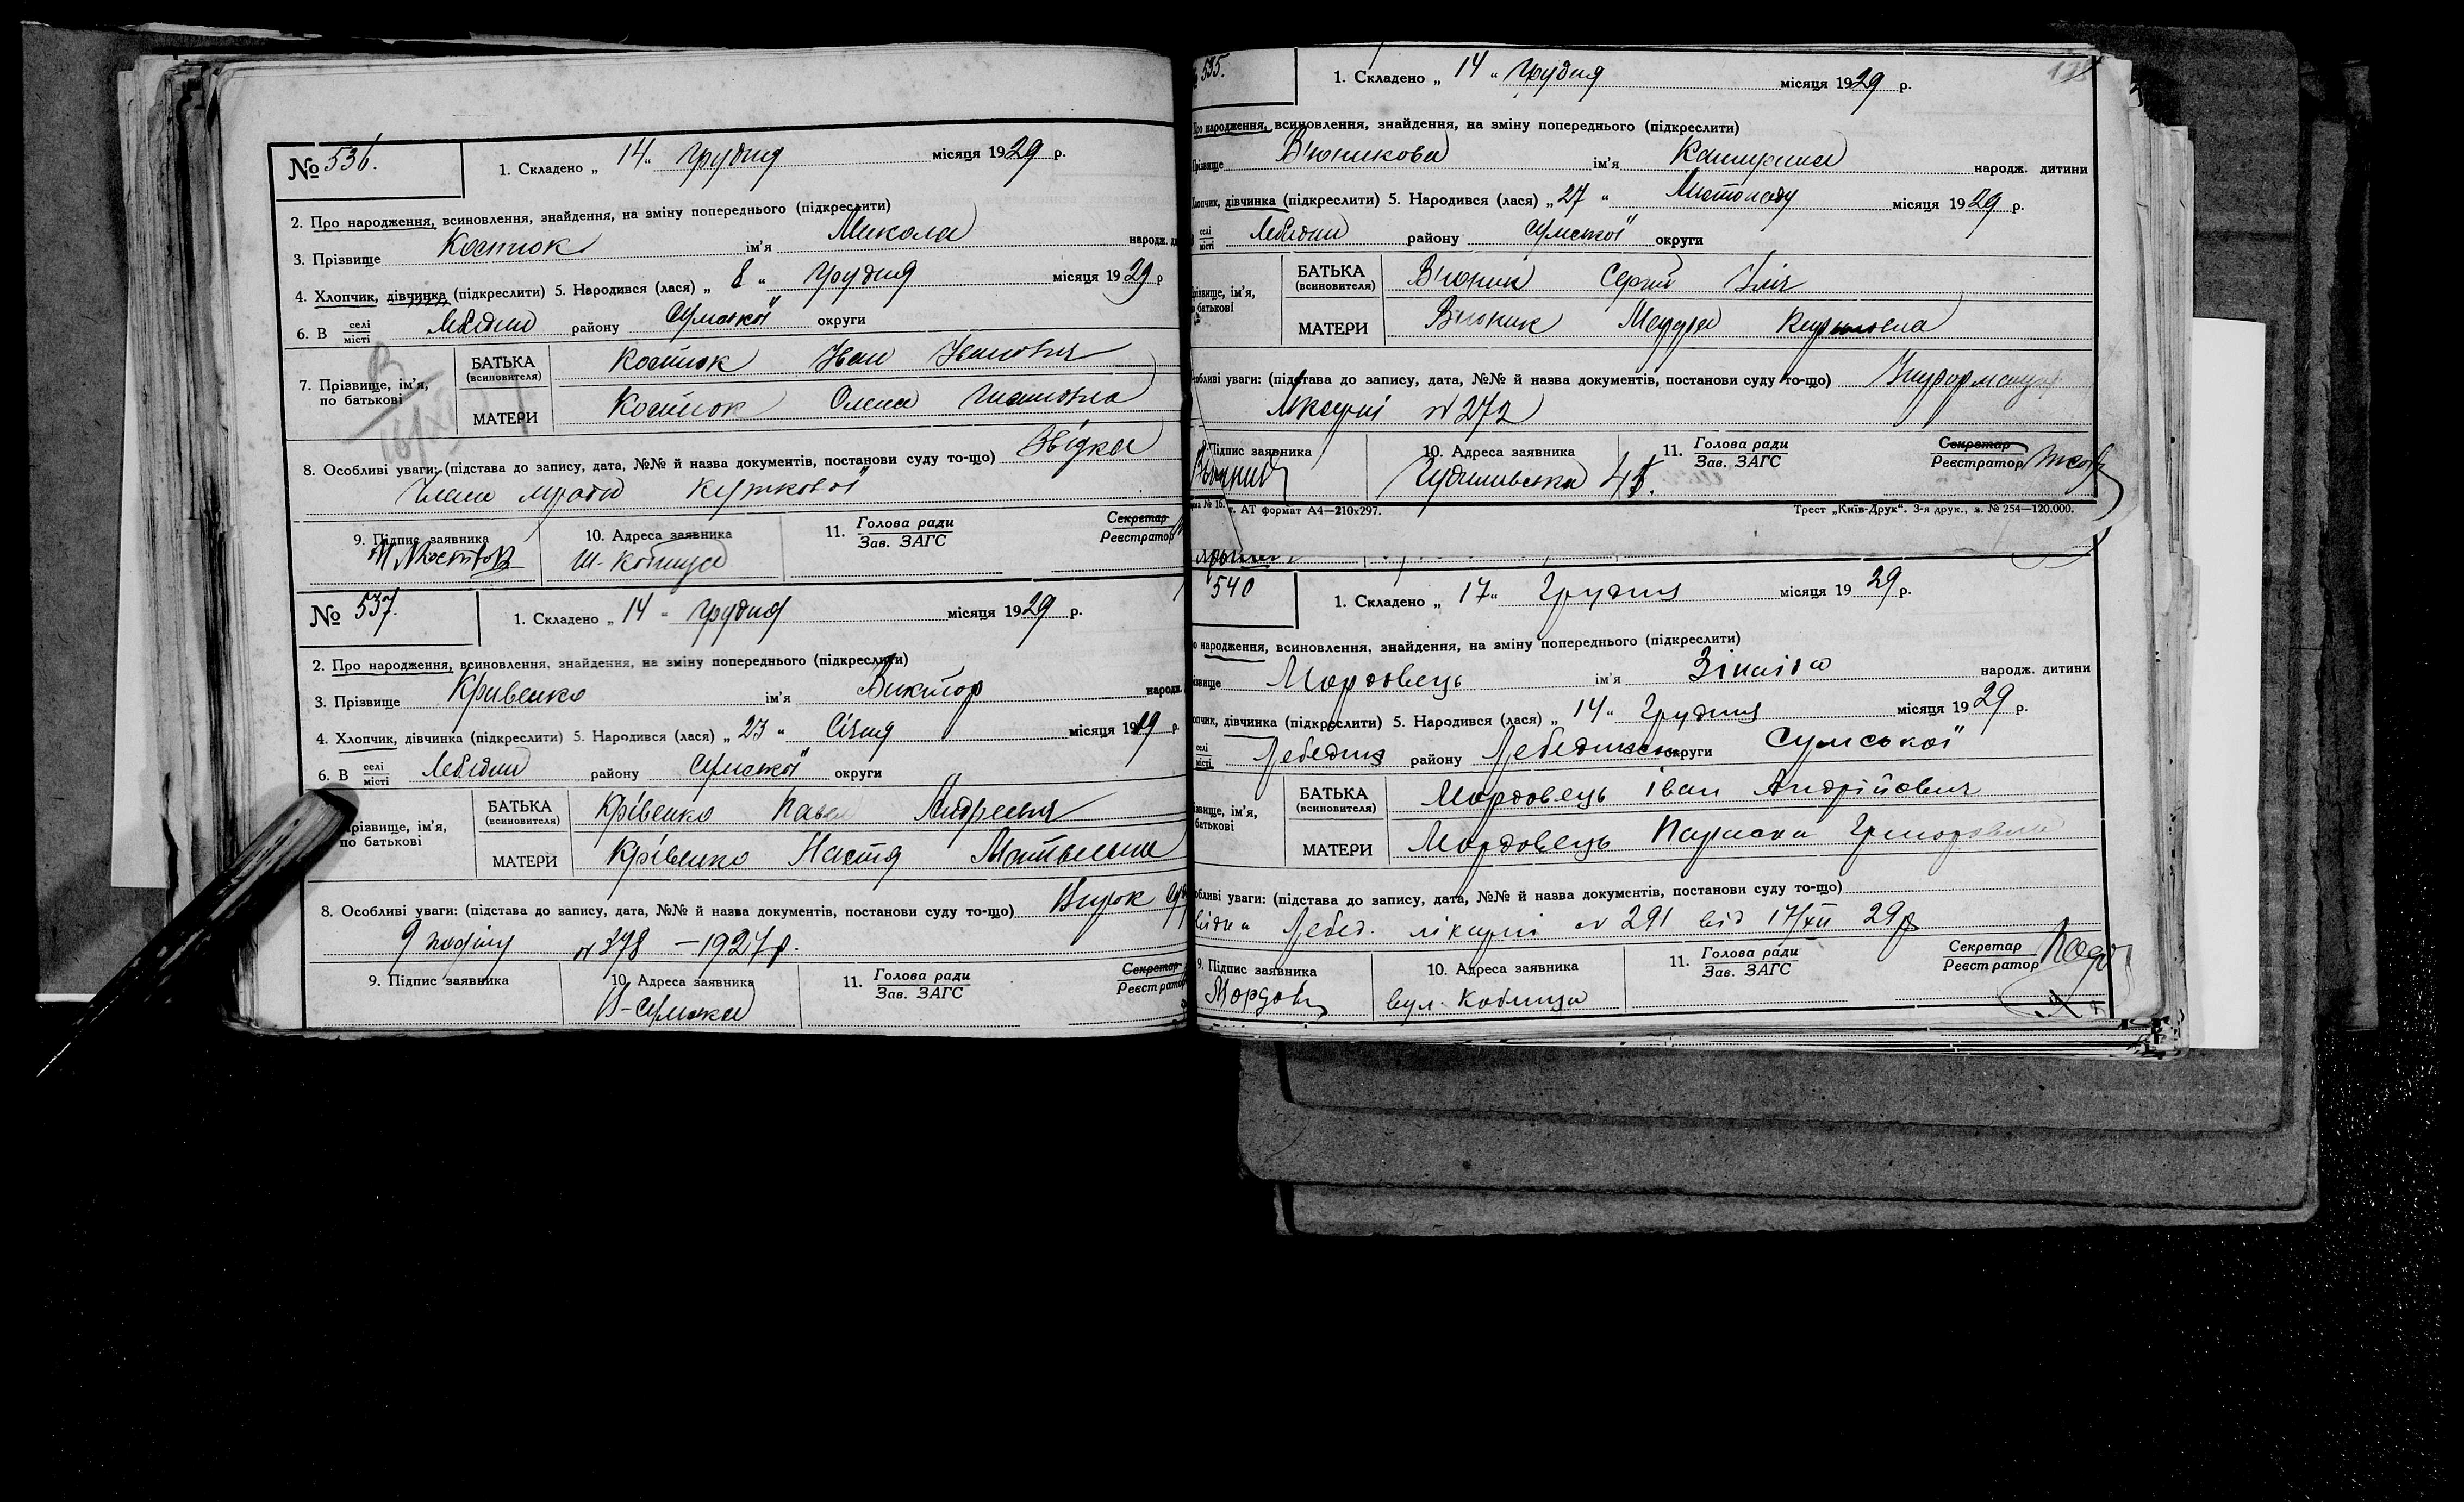 № 536. 1. Складено „ 14 " Грудня місяця 1929 р.
2. Про народження, всиновлення, знайдення, на зміну попереднього (підкреслити)
3. Прізвище Костюк ім'я Микола народж.
4. Хлопчик, дівчинка (підкреслити) 5. Народився (лася) „ 8 " Грудня місяця 1929 р
6. В селі місті Лебедин району Сумської округи
7. Прізвище, ім'я, по батькові
БАТЬКА (всиновителя) Костюк Іван Іванович
МАТЕРИ Костюк Олена
8. Особливі уваги: (підстава до запису, дата, №№ й назва документів, постанови суду то-що)
9. Підпис заявника 10. Адреса заявника 11. Голова ради Зав. ЗАГС Секретар Реєстратор
Ш-Кобища
№ 537. 1. Складено „ 14 " Грудня місяця 1929 р.
2. Про народження, всиновлення, знайдення, на зміну попереднього (підкреслити)
3. Прізвище Кривенко ім'я Виктор народж.
4. Хлопчик, дівчинка (підкреслити) 5. Народився (лася) „ 23 " Січня місяця 19 р.
6. В селі місті Лебедин району Сумської округи
Прізвище, ім'я, по батькові
БАТЬКА (всиновителя) Крівенко Павел Андреевич
МАТЕРИ Крівенко Настя
8. Особливі уваги: (підстава до запису, дата, №№ й назва документів, постанови суду то-що) Вирок
№ 378 — 1927 р.
9. Підпис заявника 10. Адреса заявника 11. Голова ради Зав. ЗАГС Секретар Реєстратор
В-Сумска
535. 1. Складено „ 14 " Грудня місяця 1929 р.
Про народження, всиновлення, знайдення, на зміну попереднього (підкреслити)
Прізвище В'юникова ім'я Катерина народж. дитини
Хлопчик, дівчинка (підкреслити) 5. Народився (лася) „ 27 " Листопаду місяця 1929 р.
селі місті Лебедин району Сумської округи
Прізвище, ім'я, батькові
БАТЬКА (всиновителя) В'юник Сергій Ілліч
МАТЕРИ Вьюник
уваги: (підстава до запису, дата, №№ й назва документів, постанови суду то-що)
Лікарні № 272
Підпис заявника 10. Адреса заявника 11. Голова ради Зав. ЗАГС Секретар Реєстратор
45.
№ 16. АТ формат А4—210x297. Трест „Київ-Друк". 3-я друк., з. № 254—120.000.
540 1. Складено „ 17 " Грудня місяця 1929 р.
народження, всиновлення, знайдення, на зміну попереднього (підкреслити)
Мордовець ім'я Зінаіда народж. дитини
дівчинка (підкреслити) 5. Народився (лася) „ 14 " Грудня місяця 1929 р.
селі місті Лебедин району Лебединськ округи Сумської
ім'я, батькові
БАТЬКА (всиновителя) Мордовець Іван Андрійович
МАТЕРИ Мордовець Параска Григоровна
уваги: (підстава до запису, дата, №№ й назва документів, постанови суду то-що)
Лебед. лікарні № 291 від 17/XII 29 р
9. Підпис заявника 10. Адреса заявника 11. Голова ради Зав. ЗАГС Секретар Реєстратор
вул. Кобища